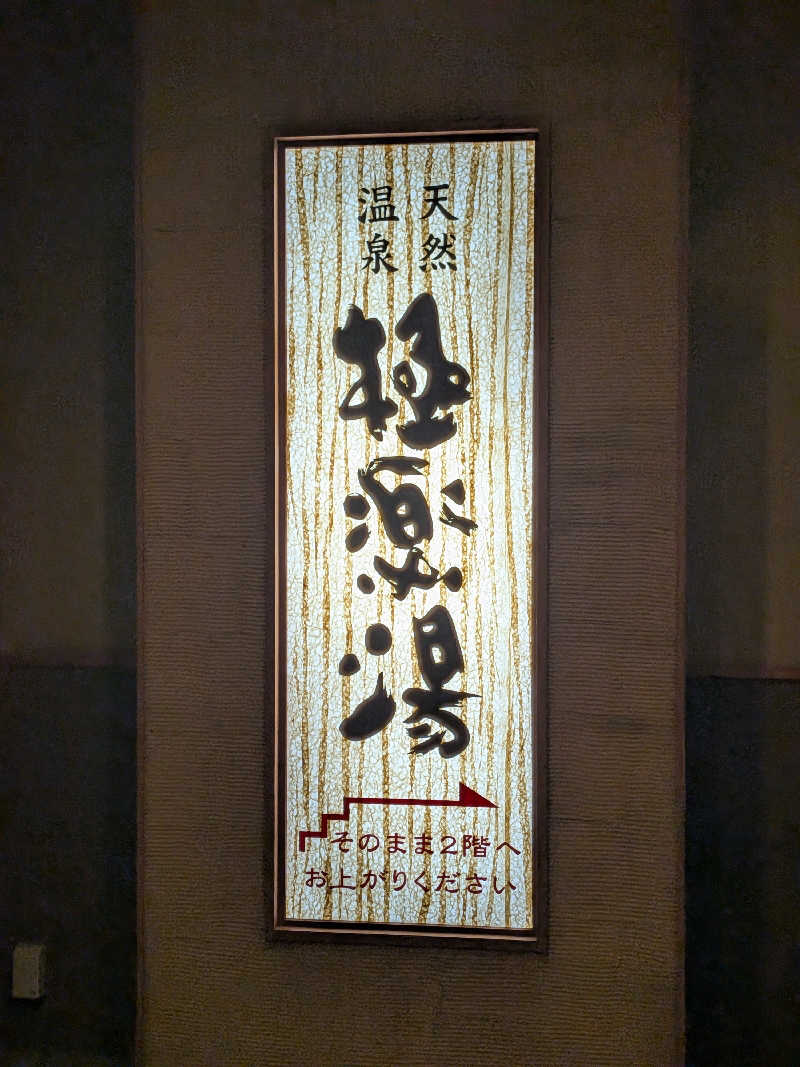 天然
温泉
極楽湯
そのまま2階へ
お上がりください